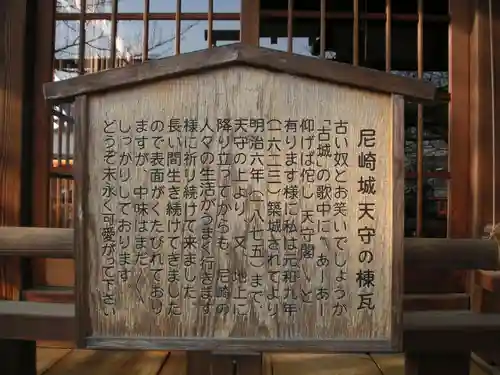 尼崎城天守の棟瓦
古い奴とお笑いでしょうが
「古城」の歌中に〝あーあー
仰げば佗し天守閣〟と
有ります様に私は元和九年
(一六二三)築城されてより
明治六年(一八七五)まで、
天守の上より、又、地上に
降り立ってからも、尼崎の
人々の生活がうまく行きます
様に祈り続けて来ました
長い間生き続けてきました
ので表面がくたびれており
ますが、中味はまだ〱
しっかりしております
どうぞ末永く可愛がって下さい